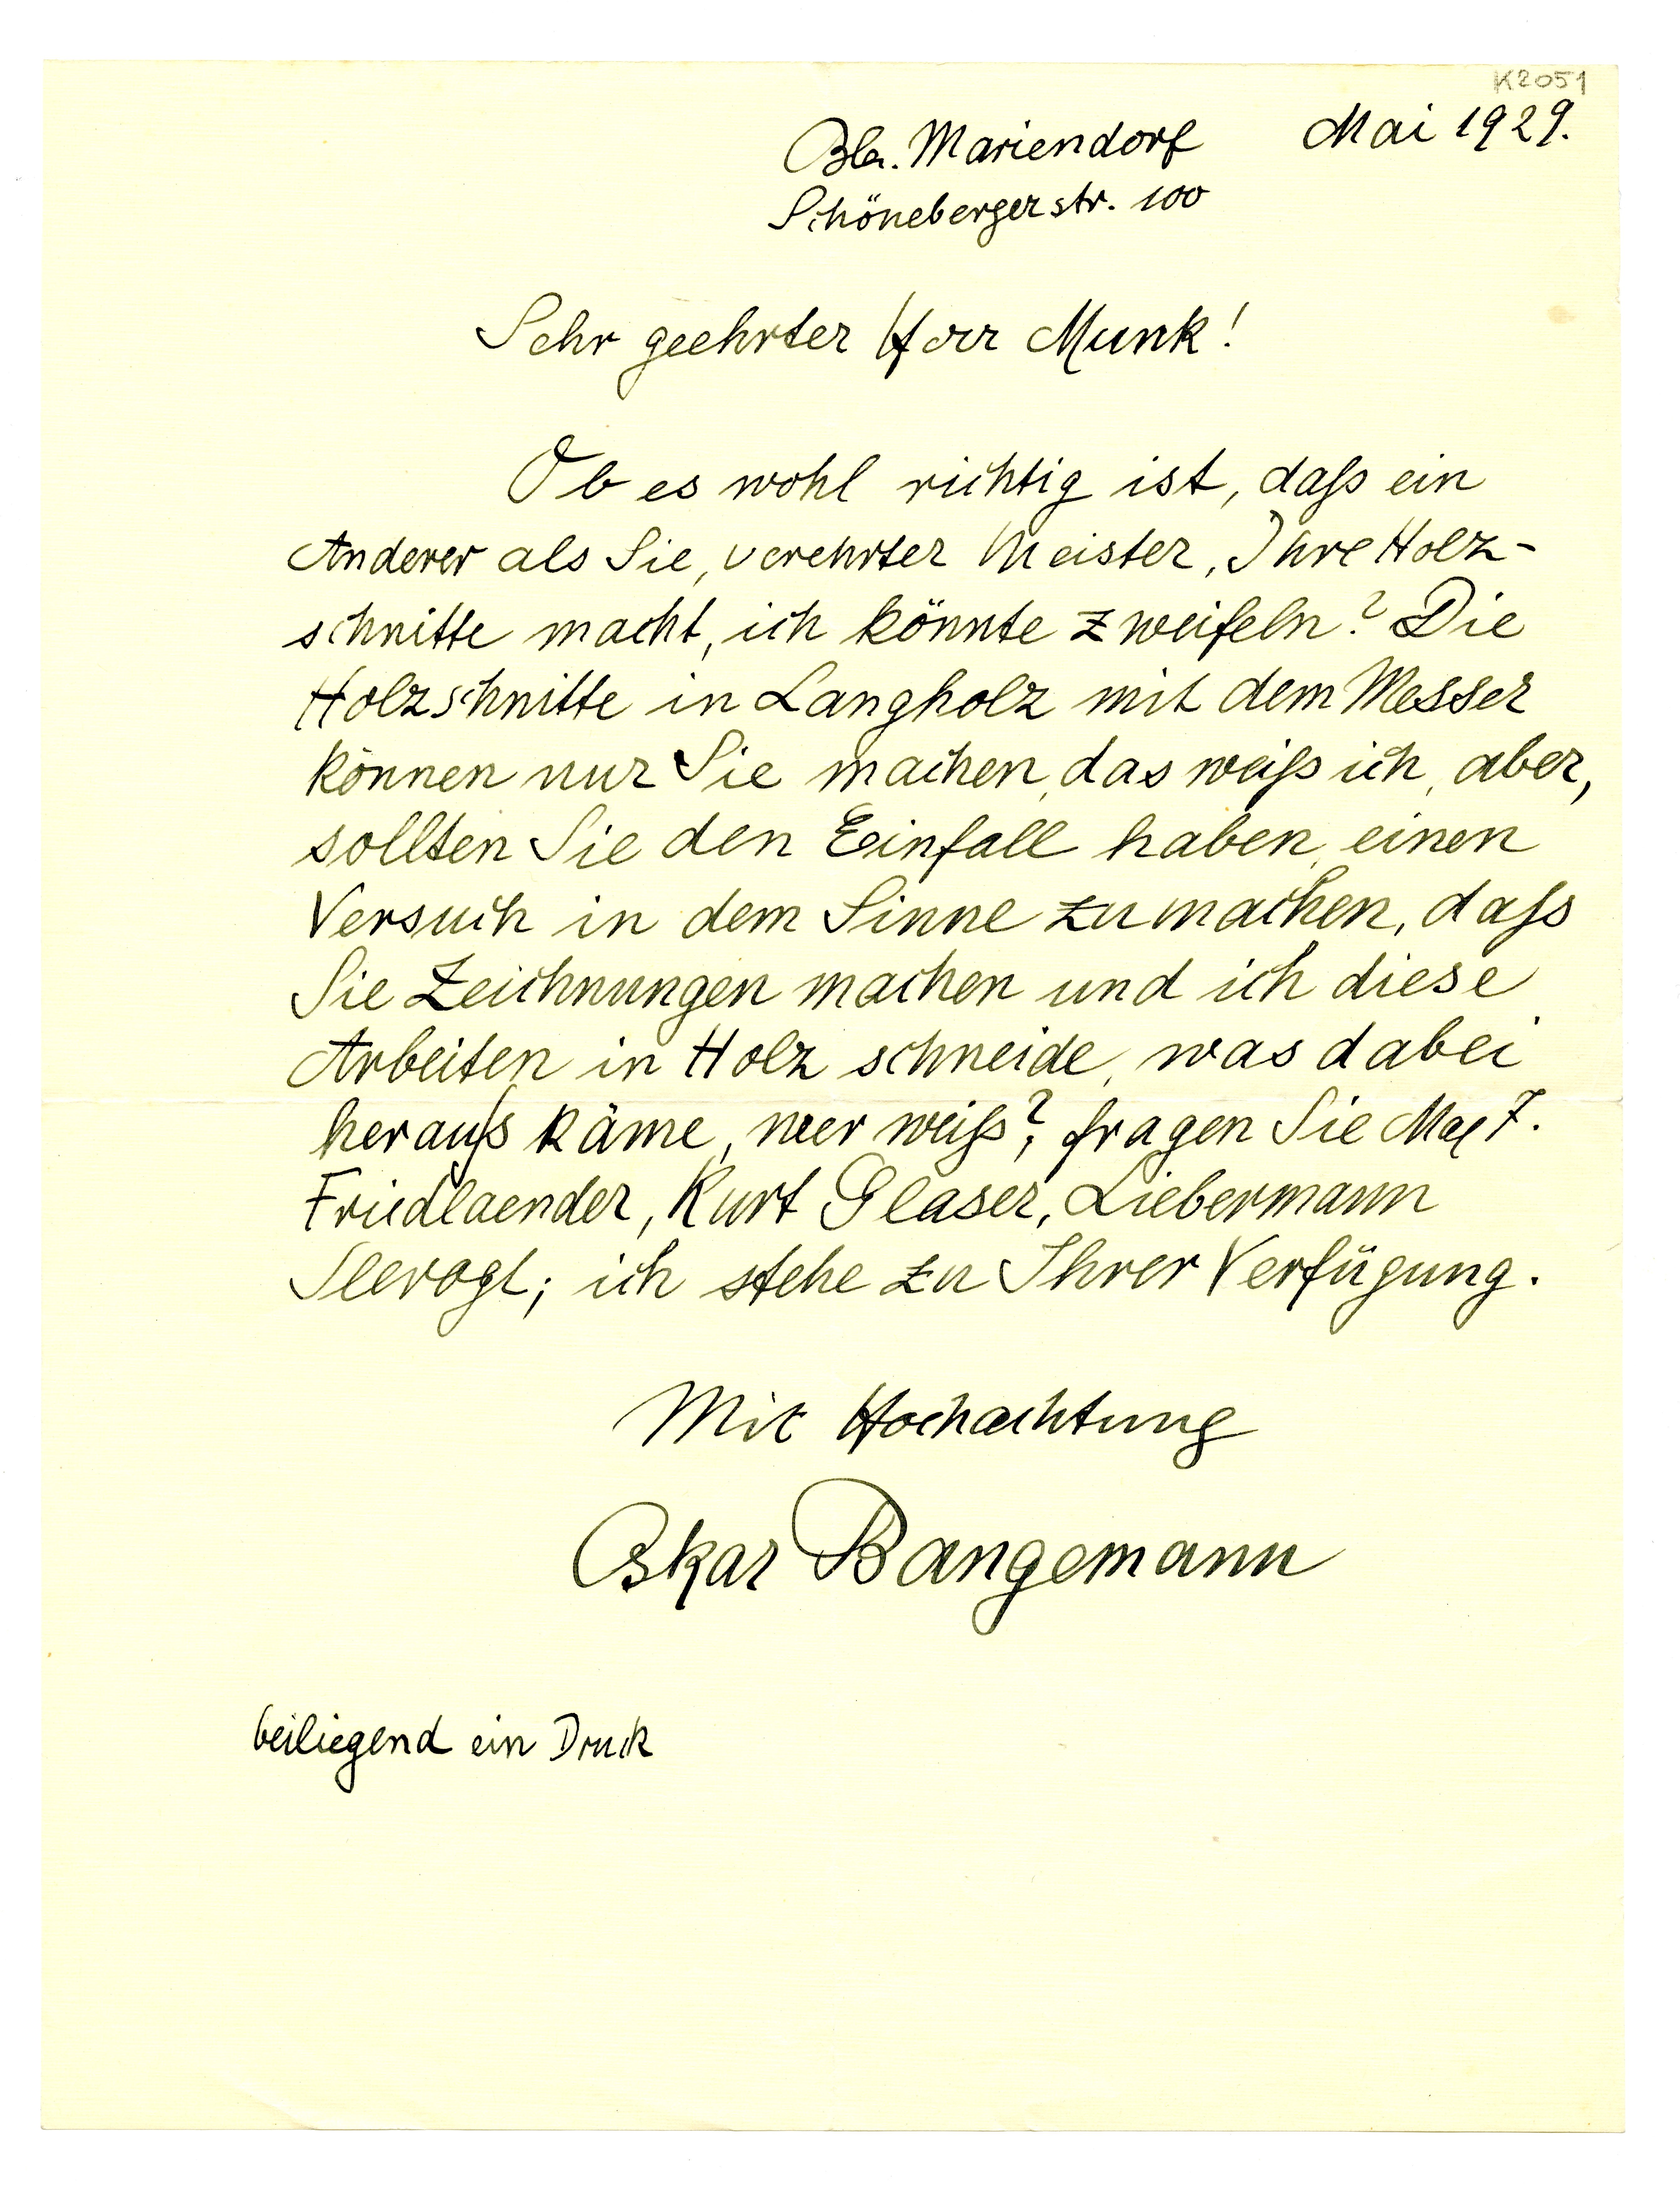 K2051
Bln. Mariendorf Mai 1929.
Schönebergerstr. 100
Sehr geehrter Herr Munk!
Ob es wohl richtig ist, daſs ein
Anderer als Sie, verehrter Meister, Ihre Holz-
schnitte macht, ich könnte zweifeln? Die
Holzschnitte in Langholz mit dem Messer
können nur Sie machen, das weiſs ich, aber,
sollten Sie den Einfall haben, einen
Versuch in dem Sinne zu machen, daſs
Sie Zeichnungen machen und ich diese
Arbeiten in Holz schneide, was dabei
herauſs käme, wer weiſs?, fragen Sie Max F.
Friedlaender, Kurt Glaser, Liebermann
Slevogt; ich stehe zu Ihrer Verfügung.
Mit Hochachtung
Oskar Bangemann
beiliegend ein Druck